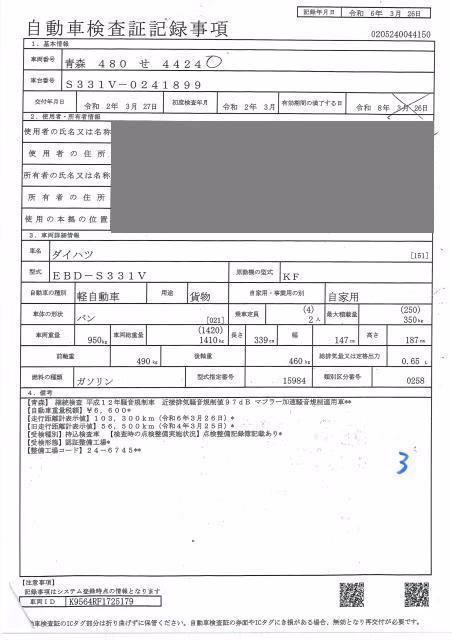 記録年月日 令和 6年 3月 26日
自動車検査証記録事項
0205240044150
1. 基本情報
車両番号 青森 480 せ 4424
車台番号 S331V-0241899
交付年月日 令和 2年 3月 27日 初度検査年月 令和 2年 3月 有効期間の満了する日 令和 8年 3月 26日
2. 使用者・所有者情報
使用者の氏名又は名称
使用者の住所
所有者の氏名又は名称
所有者の住所
使用の本拠の位置
3. 車両詳細情報
車名 ダイハツ [151]
型式 EBD-S331V 原動機の型式 KF
自動車の種別 軽自動車 用途 貨物 自家用・事業用の別 自家用
車体の形状 バン [021] 乗車定員 (4) 2人 最大積載量 (250) 350kg
車両重量 950kg 車両総重量 (1420) 1410kg 長さ 339cm 幅 147cm 高さ 187cm
前軸重 490kg 後軸重 460kg 総排気量又は定格出力 0.65L
燃料の種類 ガソリン 型式指定番号 15984 類別区分番号 0258
4. 備考
【青森】 継続検査 平成12年騒音規制車 近接排気騒音規制値97dB マフラー加速騒音規制適用車**
【自動車重量税額】¥6,600*
【走行距離計表示値】103,300km（令和6年3月26日）*
【旧走行距離計表示値】56,500km（令和4年3月25日）*
【受検種別】持込検査車 【検査時の点検整備実施状況】点検整備記録簿記載あり*
【受検形態】認証整備工場*
【整備工場コード】24-6745**
3
【注意事項】
記録事項はシステム登録時点の情報となります
車両ID K9564RF1725179
自動車検査証のICタグ部分は折り曲げずに保管ください。自動車検査証の券面やICタグにき損がある場合、無効となり再交付が必要です。